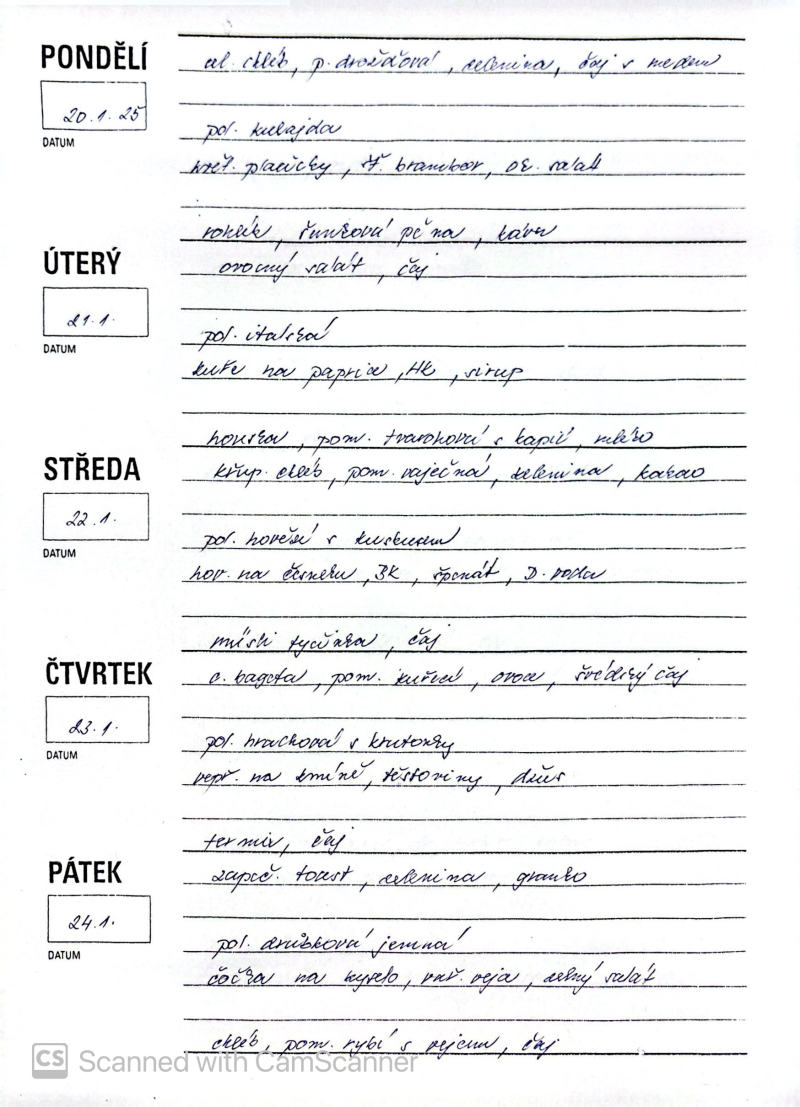 PONDĚLÍ
20.1.25
DATUM
cel. chléb, p. drožďová, zelenina, čaj s medem
pol. kulajda
krůt. placičky, šť. brambor, ok. salát
rohlík, šunková pěna, káva
ÚTERÝ
21.1.
DATUM
ovocný salát, čaj
pol. italská
kuře na paprice, HK, sirup
houska, pom. tvarohová s kapií, mléko
STŘEDA
22.1.
DATUM
křup. chléb, pom. vaječná, zelenina, kakao
pol. hovězí s kuskusem
hov. na česneku, BK, špenát, D. voda
müsli tyčinka, čaj
ČTVRTEK
23.1.
DATUM
c. bageta, pom. kuřecí, ovoce, švédský čaj
pol. hrachová s krutonky
vepř. na kmíně, těstoviny, džus
termix, čaj
PÁTEK
24.1.
DATUM
zapeč. toust, zelenina, granko
pol. drůbková jemná
čočka na kyselo, vař. vejce, zelný salát
chléb, pom. rybí s vejcem, čaj
CS Scanned with CamScanner